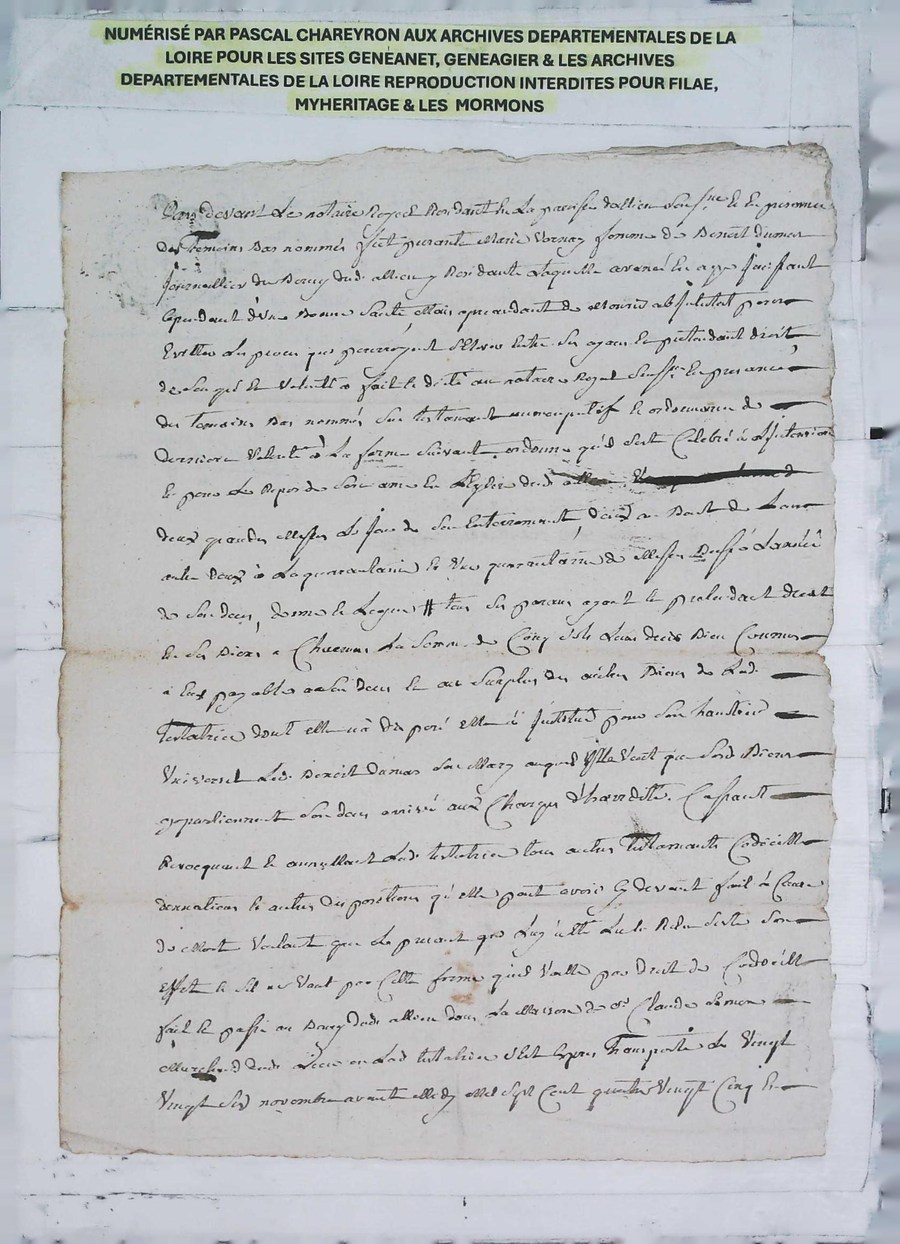 NUMÉRISÉ PAR PASCAL CHAREYRON AUX ARCHIVES DEPARTEMENTALES DE LA
LOIRE POUR LES SITES GENEANET, GENEAGIER & LES ARCHIVES
DEPARTEMENTALES DE LA LOIRE REPRODUCTION INTERDITES POUR FILAE,
MYHERITAGE & LES MORMONS
Par devant Le notaire Royal Residant En La paroisse dallieu Sousne Et En presence
Des temoins Bas nommés fut presante Marie Vernay femme de Benoit dumas
Journallier du Bourg dudt allieu y Residante Laquelle avancé En age Jouissant
Cependant d'Une Bonne Santé, Mais apreandant de Mourir ab Jntestat pour
Eviter Les proces qui pourroyent S'Elever Entre Ses ayans Et pretendant droit
de Son gré Et Volonté a fait Et dicté au notaire Royal Sousne En presance
des temoins Bas nommés Son testament nuncupatif Et ordonnance de
derniere Volonté a La forme Suivant, ordonne quil Soit Celebré a Sintention
Et pour Le Repos de Son ame En L'Eglise dudt allieu
deux grandes Messes Le Jour de Son Enterrement, deux au Bout de Lan
autre deux a La quarantaine Et Une quarantaine de Messes Basses Lannée
de Son deces, donne Et Legue # tous Ses parans ayant Et pretendant droit
En Ses Biens a Chacuns La Somme de Cinq Sols Leurs droits Bien Connus
a Eux payable a Son deces Et au Surplus des autres Biens de Lade
testatrice dont elle n'a disposé elle a Jnstitué pour Son haritier
Universel Ledt Benoit Dumas Son Mary auquel Elle Veut que Sesd Biens
appartiennent Son deces arrivé aux Charges d'haredité. Cassant
Revocquant Et annullant Lade testatrice tous autres testamants Codicille
donnations Et autres dispositions qu'elle pout avoir Cy devant fait a Cause
de Mort Voulant que Le presant que Luy a été Lu Et Relu Sorte Son
Effet Et Sil ne Vaut par Cette forme quil Vaille par Droit de Codicille
fait Et passé au Bourg dudt allieu dans La Maison de Sr Claude
Marchand dudt Lieu ou Lade testatrice S'Est Expres Transporté Le Vingt
Vingt Six novembre avant Midy Mil Sept Cent quatre Vingt Cinq En